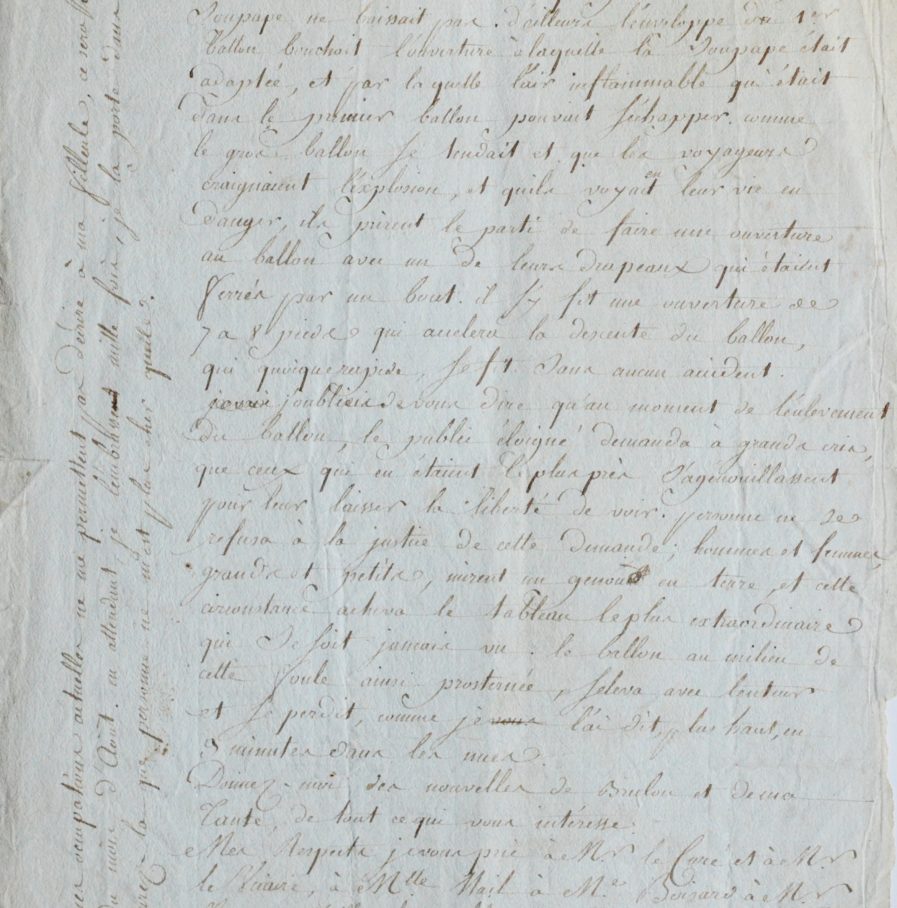 Soupape ne baissait pas. d'ailleurs l'enveloppe du 1er
Ballon bouchoit l'ouverture a laquelle la Soupape était
adaptée, et par laquelle l'air inflammable qui était
dans le premier ballon pouvait s'échapper. comme
le gros ballon se tendait et que les voyageurs
craignaient l'explosion, et qu'ils voyait en leur vie en
danger, ils prirent le parti de faire une ouverture
au ballon avec un de leurs drapeaux qui étaient
ferrés par un bout. il s'y fit une ouverture de
7 a 8 pieds qui accelera la descente du ballon,
qui quoique rapide, se fit sans aucun accident.
j'oubliais de vous dire qu'au moment de l'enlevement
du ballon, le public éloigné demanda à grands cris,
que ceux qui en étaient le plus près s'agenouillassent
pour leur laisser la liberté de voir. personne ne se
refusa à la justice de cette demande; hommes et femmes,
grands et petits, mirent un genou en terre, et cette
circonstance acheva le tableau le plus extraordinaire
qui se soit jamais vu. le ballon au milieu de
cette foule ainsi prosternée, s'eleva avec lenteur
et se perdit, comme je vous l'ai dit plus haut, en
3 minutes dans les nues.
Donnez-moi des nouvelles de Brulon et de ma
Tante, de tout ce qui vous intéresse.
Mes Respects je vous prie à Mr le Curé et à Mr
le Vicaire, à Mlle Mail à Me à Mr
occupations actuelles ne me permettent pas d'écrire à ma filleule, ce sera
du mois d'Août. en attendant, je l'embrasse mille fois, je la porte dans
la que personne ne m'est plus cher qu'elle.